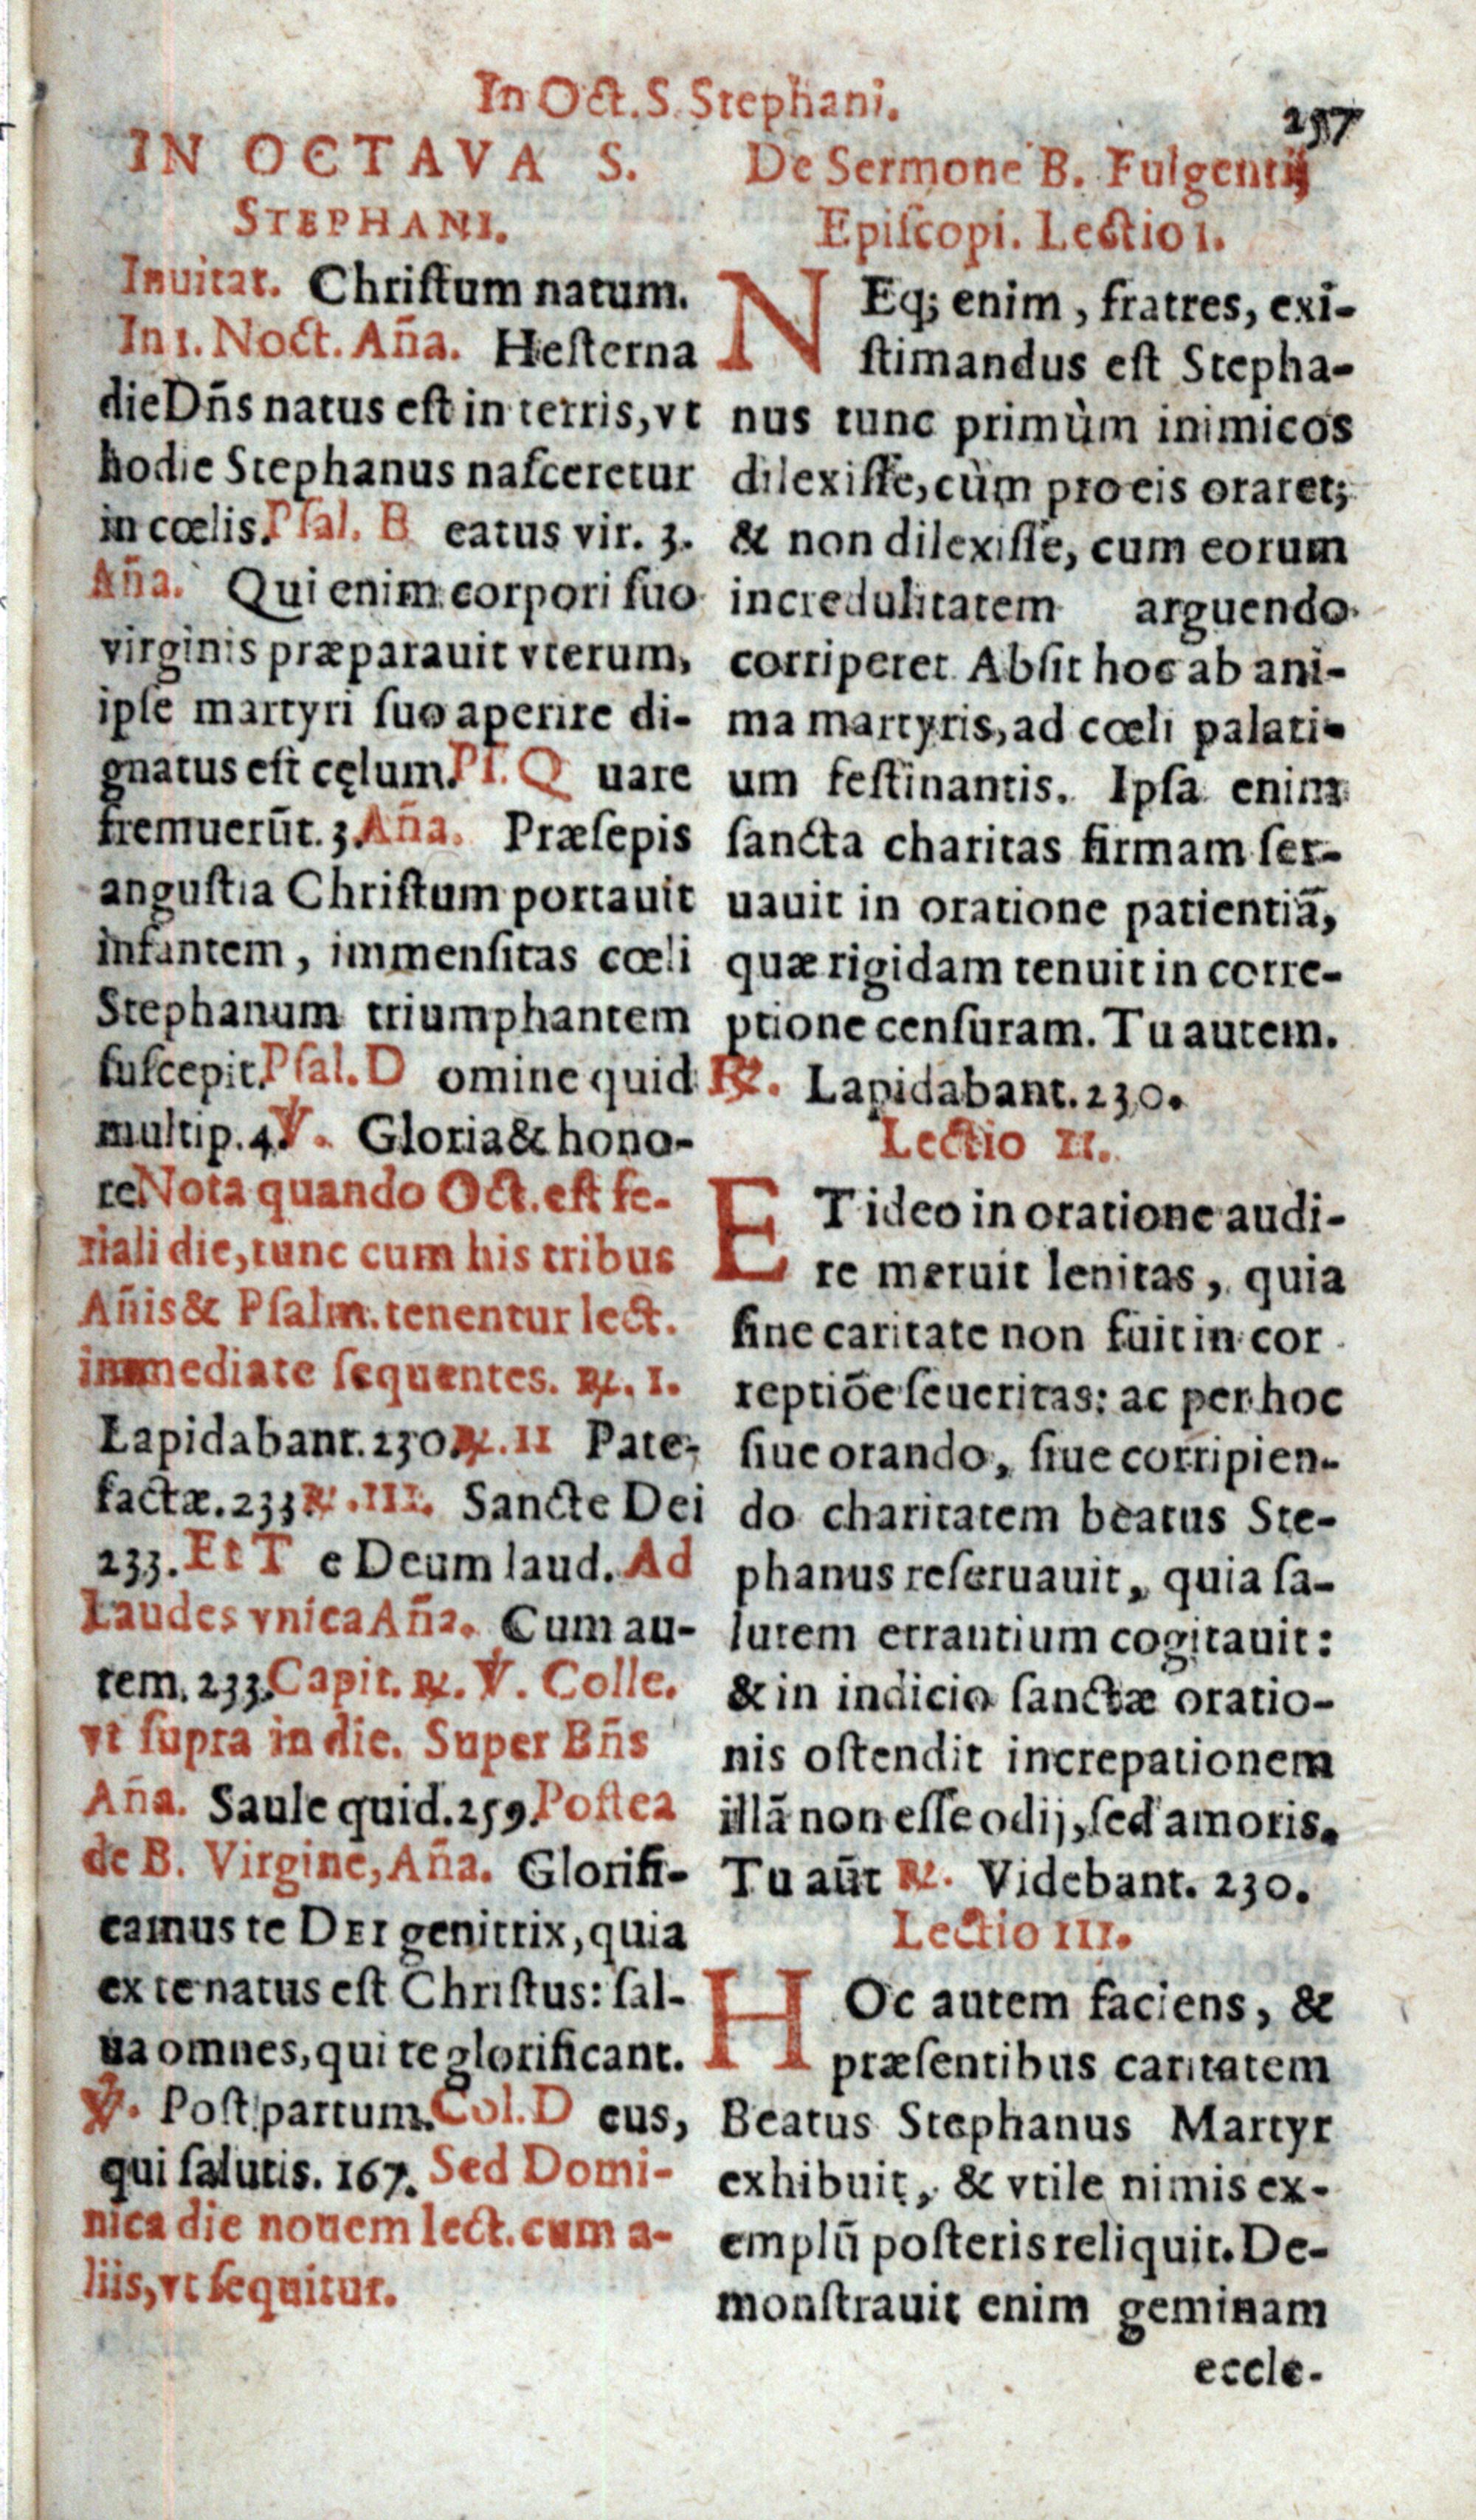 In Oct. S. Stephani.
257
IN OCTAVA S.
STEPHANI.
Inuitat. Chriſtum natum.
In 1. Noct. Aña. Heſterna
die Dñs natus eſt in terris, vt
hodie Stephanus naſceretur
in cœlis. Pſal. B eatus vir. 3.
Aña. Qui enim corpori ſuo
virginis præparauit vterum,
ipſe martyri ſuo aperire di-
gnatus eſt cęlum. Pſ. Q uare
fremuerūt. 3. Aña. Præſepis
anguſtia Chriſtum portauit
infantem, immenſitas cœli
Stephanum triumphantem
ſuſcepit. Pſal. D omine quid
multip. 4. ℣. Gloria & hono-
re Nota quando Oct. eſt fe-
riali die, tunc cum his tribus
Añis & Pſalm. tenentur lect.
immediate ſequentes. ℟. I.
Lapidabant. 230. ℟. II Pate-
factæ. 233 ℟. III. Sancte Dei
233. Et T e Deum laud. Ad
Laudes vnica Aña. Cum au-
tem. 233. Capit. ℟. ℣. Colle.
vt ſupra in die. Super Bñs
Aña. Saule quid. 259. Poſtea
de B. Virgine, Aña. Glorifi-
camus te DEI genitrix, quia
ex te natus eſt Chriſtus: ſal-
ua omnes, qui te glorificant.
℣. Poſt partum. Col. D eus,
qui ſalutis. 167. Sed Domi-
nica die nouem lect. cum a-
liis, vt ſequitur.
De Sermone B. Fulgentij
Epiſcopi. Lectio 1.
NEq; enim, fratres, exi-
ſtimandus eſt Stepha-
nus tunc primùm inimicos
dilexiſſe, cùm pro eis oraret;
& non dilexiſſe, cum eorum
incredulitatem arguendo
corriperet. Abſit hoc ab ani-
ma martyris, ad cœli palati-
um feſtinantis. Ipſa enim
ſancta charitas firmam ſer-
uauit in oratione patientiā,
quæ rigidam tenuit in corre-
ptione cenſuram. Tu autem.
℟. Lapidabant. 230.
Lectio II.
ET ideo in oratione audi-
re meruit lenitas, quia
ſine caritate non fuit in cor
reptiōe ſeueritas: ac per hoc
ſiue orando, ſiue corripien-
do charitatem beatus Ste-
phanus reſeruauit, quia ſa-
lutem errantium cogitauit:
& in indicio ſanctæ oratio-
nis oſtendit increpationem
illā non eſſe odij, ſed amoris.
Tu aūt ℟. Videbant. 230.
Lectio III.
HOc autem faciens, &
præſentibus caritatem
Beatus Stephanus Martyr
exhibuit, & vtile nimis ex-
emplū poſteris reliquit. De-
monſtrauit enim geminam
eccle-